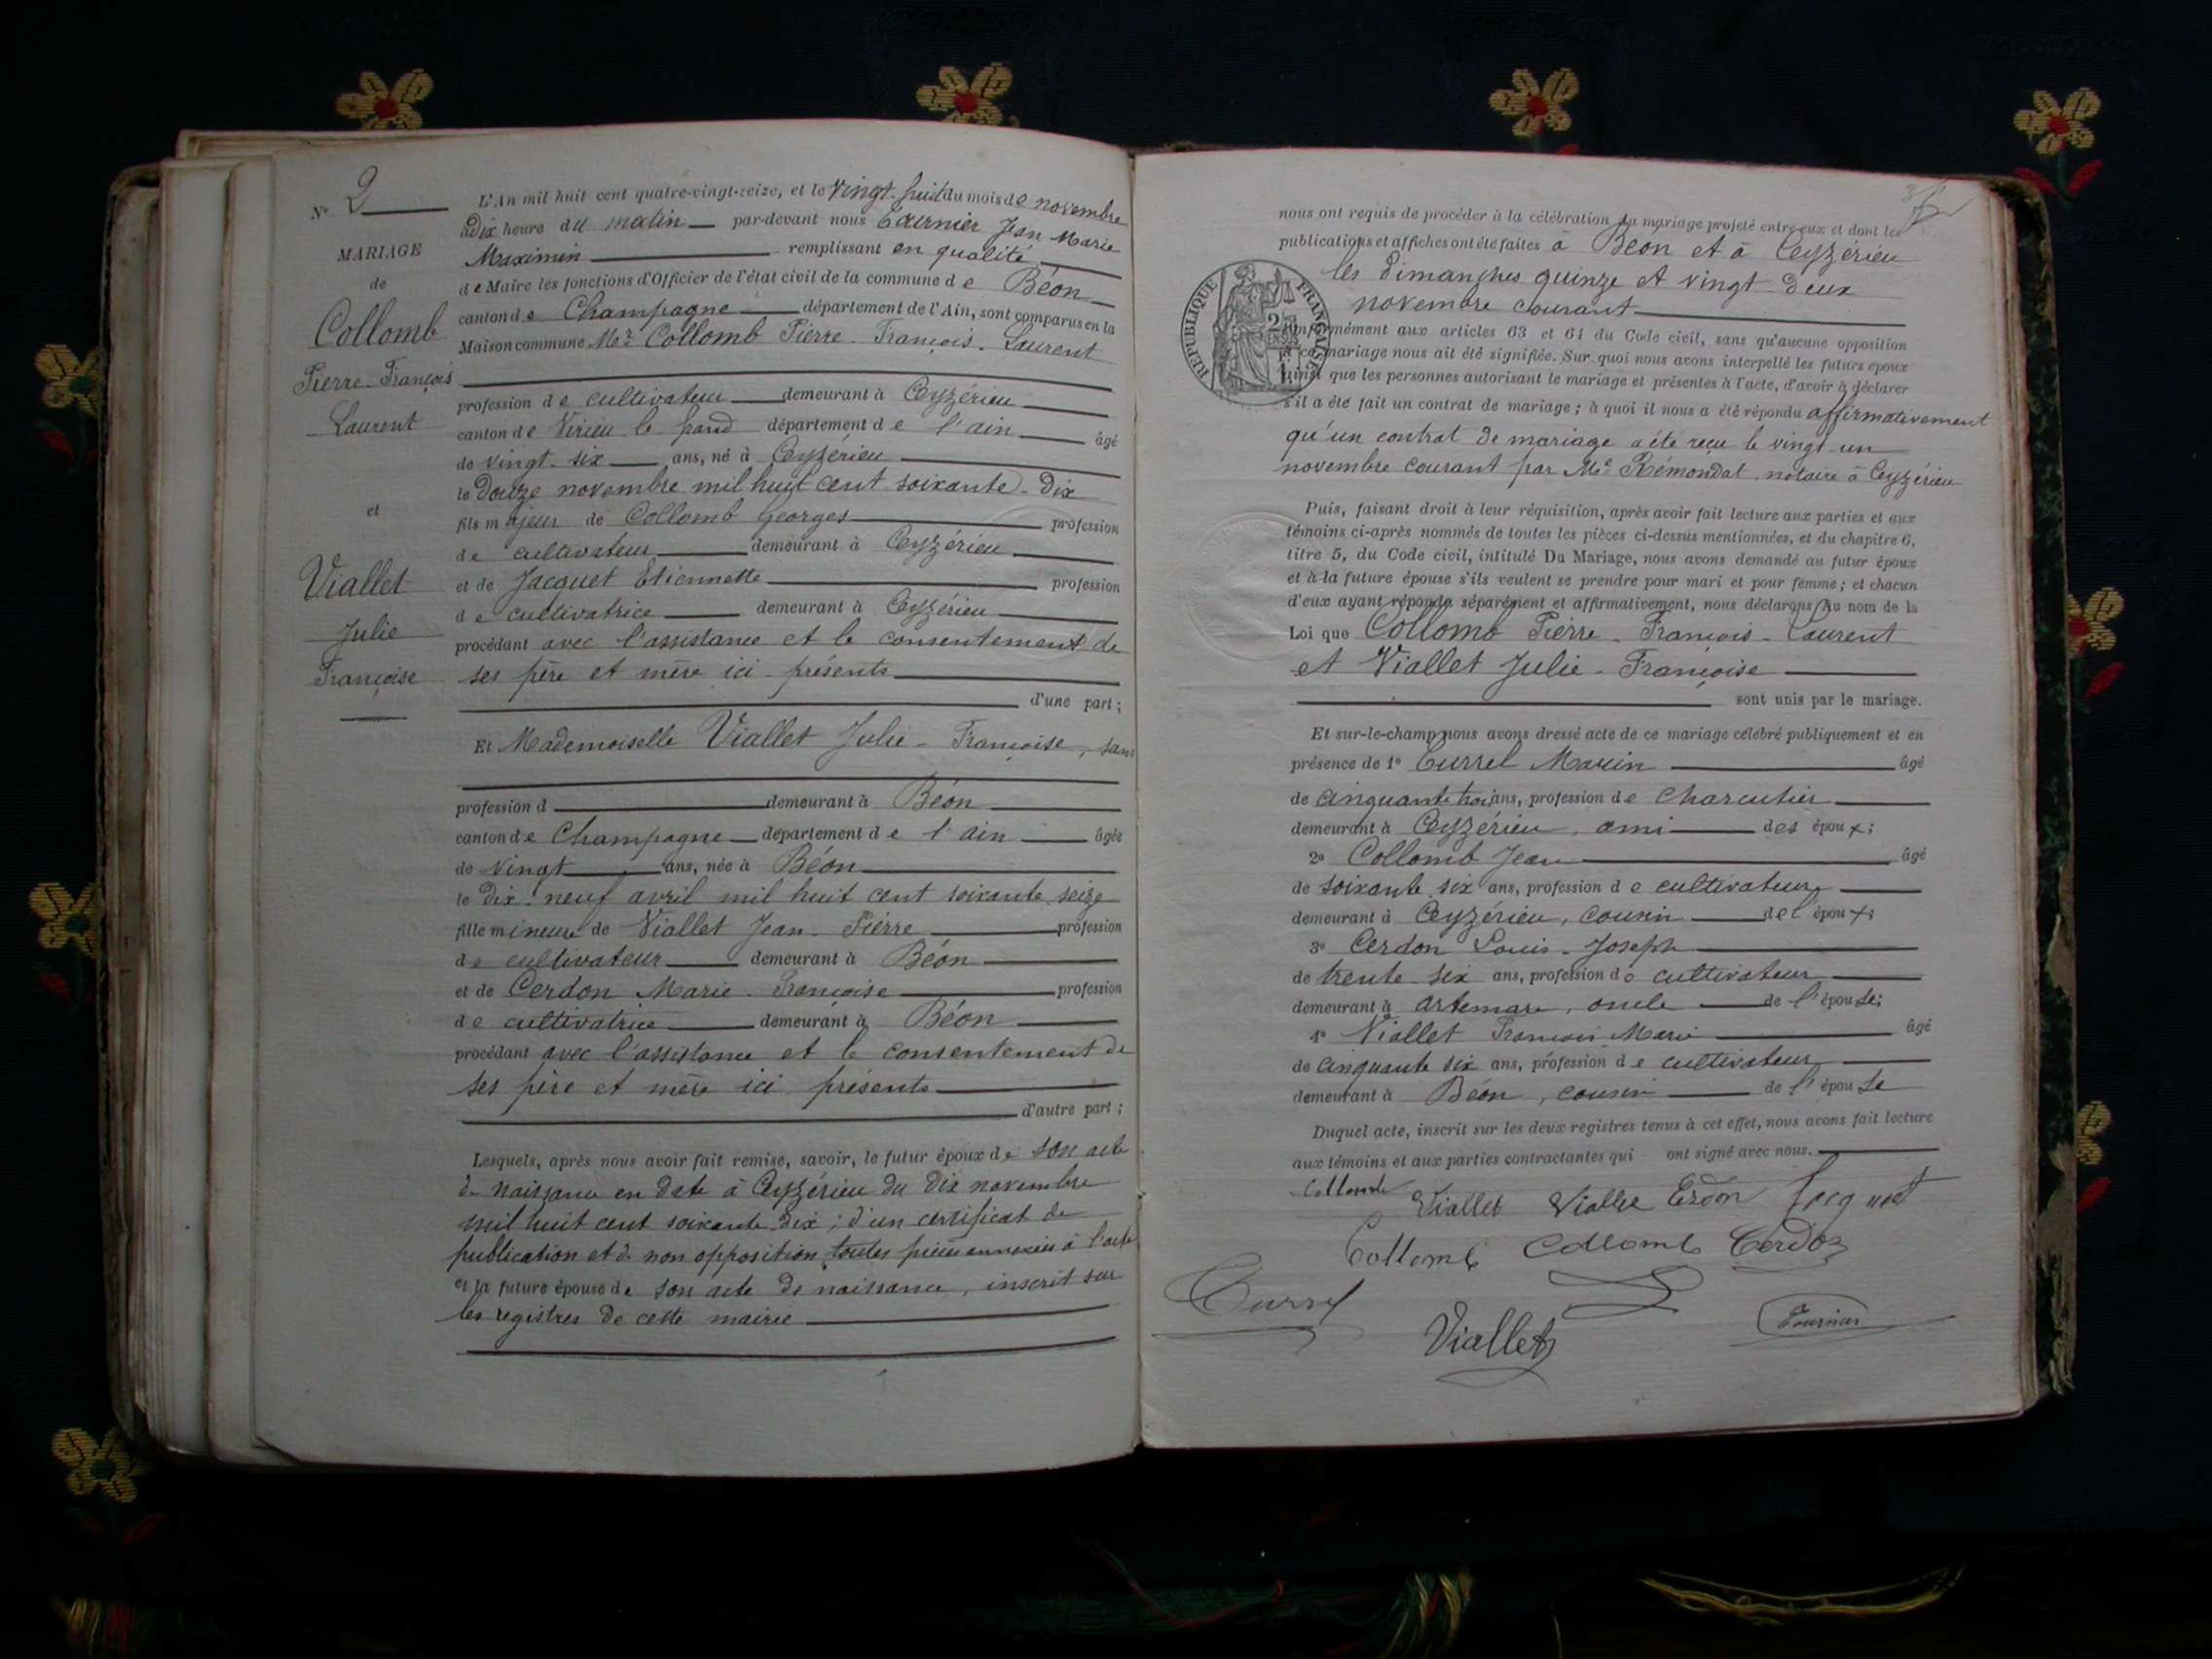 Nº 2
MARIAGE
de
Collomb
Pierre-François
Laurent
et
Viallet
Julie
Françoise
L'An mil huit cent quatre-vingt-seize, et le vingt-huit du mois de novembre
à dix heure du matin par-devant nous Tournier Jean Marie
Maximin remplissant en qualité
de Maire les fonctions d'Officier de l'état civil de la commune de Béon
canton de Champagne département de l'Ain, sont comparus en la
Maison commune Mr Collomb Pierre-François-Laurent
profession de cultivateur demeurant à Ceyzérieu
canton de Virieu le Grand département de l'ain âgé
de vingt-six ans, né à Ceyzérieu
le Douze novembre mil huit cent soixante-dix
fils majeur de Collomb Georges profession
de cultivateur demeurant à Ceyzérieu
et de Jacquet Etiennette profession
de cultivatrice demeurant à Ceyzérieu
procédant avec l'assistance et le consentement de
ses père et mère ici présents
d'une part;
Et Mademoiselle Viallet Julie-Françoise, sans
profession d demeurant à Béon
canton de Champagne département de l'ain âgée
de vingt ans, née à Béon
le dix-neuf avril mil huit cent soixante seize
fille mineure de Viallet Jean-Pierre profession
de cultivateur demeurant à Béon
et de Cerdon Marie-Françoise profession
de cultivatrice demeurant à Béon
procédant avec l'assistance et le consentement de
ses père et mère ici présents
d'autre part;
Lesquels, après nous avoir fait remise, savoir, le futur époux de son acte
de naissance en date à Ceyzérieu du dix novembre
mil huit cent soixante dix; d'un certificat de
publication et de non opposition, toutes pièces annexées à l'acte
et la future épouse de son acte de naissance, inscrit sur
les registres de cette mairie
nous ont requis de procéder à la célébration du mariage projeté entre eux et dont les
publications et affiches ont été faites à Béon et à Ceyzérieu
les dimanches quinze et vingt-deux
novembre courant
RÉPUBLIQUE FRANÇAISE
conformément aux articles 63 et 64 du Code civil, sans qu'aucune opposition
à ce mariage nous ait été signifiée. Sur quoi nous avons interpellé les futurs époux
ainsi que les personnes autorisant le mariage et présentes à l'acte, d'avoir à déclarer
s'il a été fait un contrat de mariage; à quoi il nous a été répondu affirmativement
qu'un contrat de mariage a été reçu le vingt-un
novembre courant par Me Rémondat, notaire à Ceyzérieu
Puis, faisant droit à leur réquisition, après avoir fait lecture aux parties et aux
témoins ci-après nommés de toutes les pièces ci-dessus mentionnées, et du chapitre 6,
titre 5, du Code civil, intitulé Du Mariage, nous avons demandé au futur époux
et à la future épouse s'ils veulent se prendre pour mari et pour femme; et chacun
d'eux ayant répondu séparément et affirmativement, nous déclarons au nom de la
Loi que Collomb Pierre-François-Laurent
et Viallet Julie-Françoise
sont unis par le mariage.
Et sur-le-champ nous avons dressé acte de ce mariage célébré publiquement et en
présence de 1º Currel Marin âgé
de cinquante trois ans, profession de charcutier
demeurant à Ceyzérieu, ami des époux;
2º Collomb Jean âgé
de soixante six ans, profession de cultivateur
demeurant à Ceyzérieu, cousin de l'époux;
3º Cerdon Louis-Joseph
de trente-six ans, profession de cultivateur
demeurant à Artemare, oncle de l'épouse;
4º Viallet François Marie âgé
de cinquante six ans, profession de cultivateur
demeurant à Béon, cousin de l'épouse
Duquel acte, inscrit sur les deux registres tenus à cet effet, nous avons fait lecture
aux témoins et aux parties contractantes qui ont signé avec nous.
Collomb Viallet Jacquet
Collomb Collomb Cerdon
Currel
Viallet
Tournier